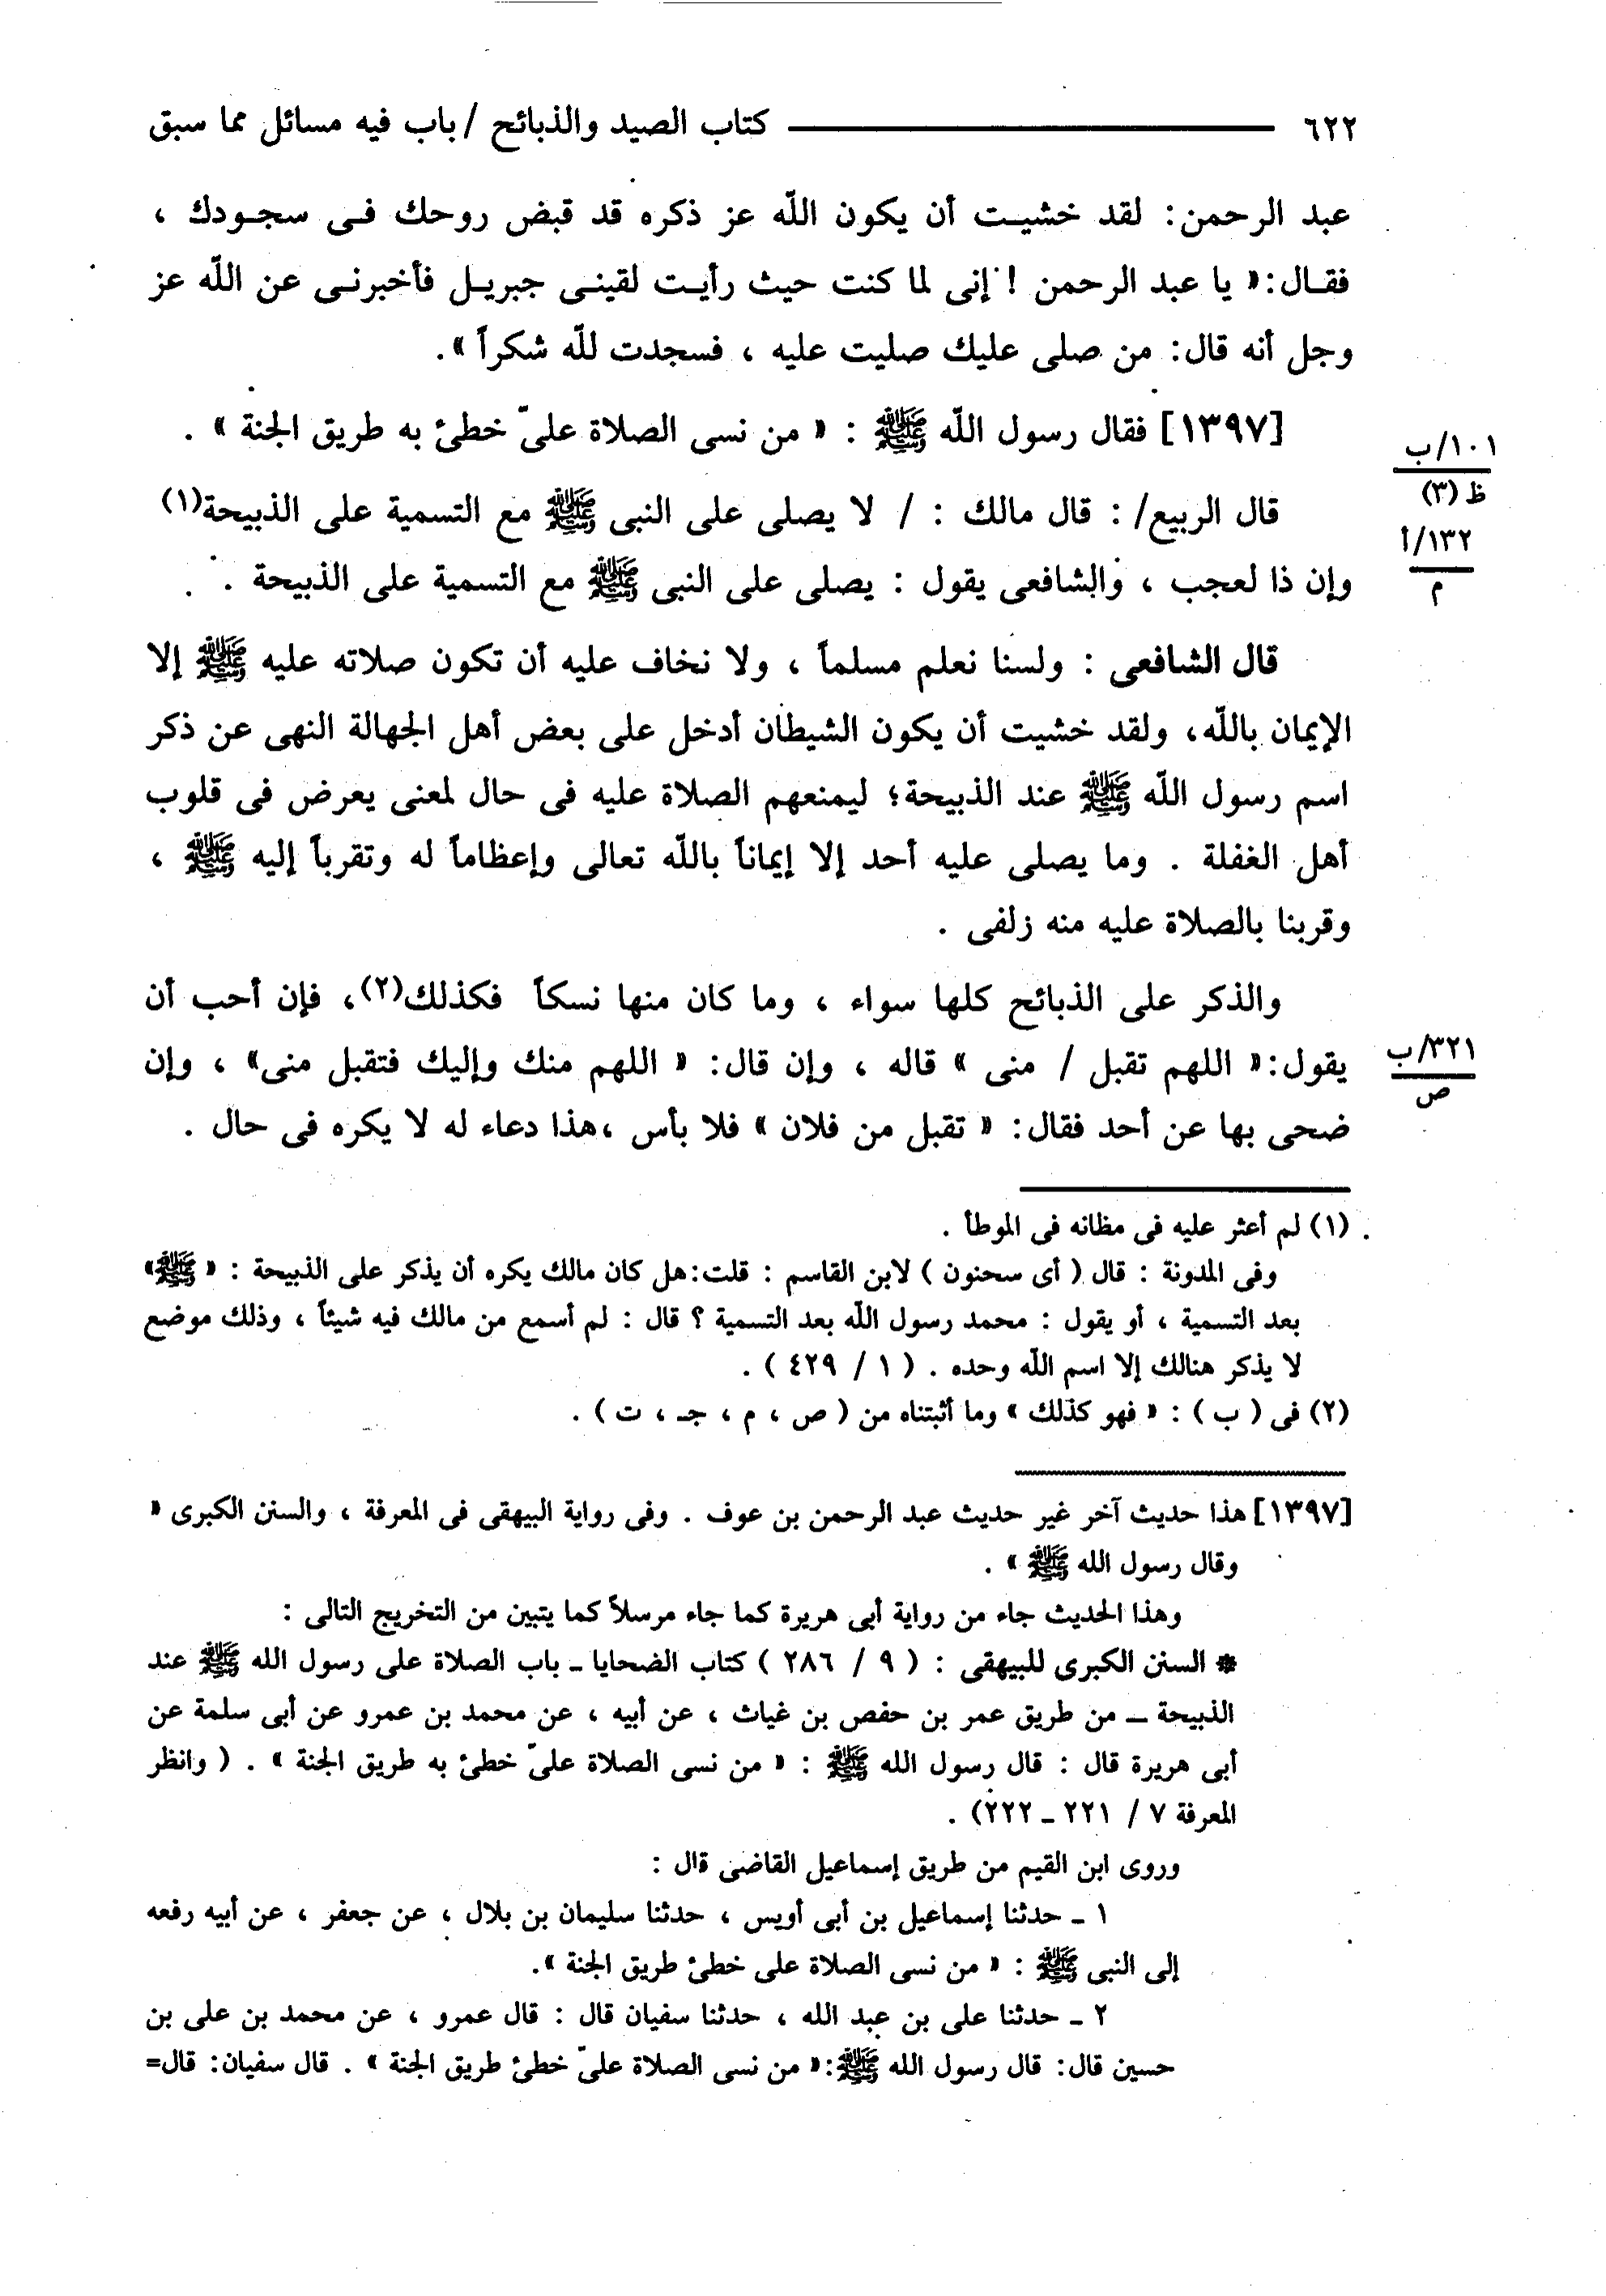 ٦٢٢ ـــــــ كتاب الصيد والذبائح / باب فيه مسائل مما سبق
عبد الرحمن: لقد خشيت أن يكون الله عز ذكره قد قبض روحك فى سجودك ،
فقال: « يا عبد الرحمن ! إنى لما كنت حيث رأيت لقينى جبريل فأخبرنى عن الله عز
وجل أنه قال: من صلى عليك صليت عليه ، فسجدت لله شكراً ».
[١٣٩٧] فقال رسول الله ﷺ : « من نسى الصلاة علىّ خطئ به طريق الجنة » .
١٠١/ب
ظ (٣)
قال الربيع/ : قال مالك : / لا يصلى على النبى ﷺ مع التسمية على الذبيحة(١)
١٣٢/أ
م
وإن ذا لعجب ، والشافعى يقول : يصلى على النبى ﷺ مع التسمية على الذبيحة .
قال الشافعى : ولسنا نعلم مسلماً ، ولا نخاف عليه أن تكون صلاته عليه ﷺ إلا
الإيمان بالله، ولقد خشيت أن يكون الشيطان أدخل على بعض أهل الجهالة النهى عن ذكر
اسم رسول الله ﷺ عند الذبيحة؛ ليمنعهم الصلاة عليه فى حال لمعنى يعرض فى قلوب
أهل الغفلة . وما يصلى عليه أحد إلا إيماناً بالله تعالى وإعظاماً له وتقرباً إليه ﷺ ،
وقربنا بالصلاة عليه منه زلفى .
والذكر على الذبائح كلها سواء ، وما كان منها نسكاً فكذلك(٢)، فإن أحب أن
يقول: « اللهم تقبل / منى » قاله ، وإن قال: « اللهم منك وإليك فتقبل منى» ، وإن
٣٢١/ب
ص
ضحى بها عن أحد فقال: « تقبل من فلان » فلا بأس ،هذا دعاء له لا يكره فى حال .
(١) لم أعثر عليه فى مظانه فى الموطأ .
وفى المدونة : قال ( أى سحنون ) لابن القاسم : قلت:هل كان مالك يكره أن يذكر على الذبيحة : « ﷺ»
بعد التسمية ، أو يقول : محمد رسول الله بعد التسمية ؟ قال : لم أسمع من مالك فيه شيئاً ، وذلك موضع
لا يذكر هنالك إلا اسم الله وحده . ( ١ / ٤٢٩ ) .
(٢) فى ( ب ) : « فهو كذلك » وما أثبتناه من ( ص ، م ، جـ ، ت ) .
[١٣٩٧] هذا حديث آخر غير حديث عبد الرحمن بن عوف . وفى رواية البيهقى فى المعرفة ، والسنن الكبرى «
وقال رسول الله ﷺ » .
وهذا الحديث جاء من رواية أبى هريرة كما جاء مرسلاً كما يتبين من التخريج التالى :
* السنن الكبرى للبيهقى : ( ٩ / ٢٨٦ ) كتاب الضحايا ـ باب الصلاة على رسول الله ﷺ عند
الذبيحة ـ من طريق عمر بن حفص بن غياث ، عن أبيه ، عن محمد بن عمرو عن أبى سلمة عن
أبى هريرة قال : قال رسول الله ﷺ : « من نسى الصلاة علىّ خطئ به طريق الجنة » . ( وانظر
المعرفة ٧ / ٢٢١ ـ ٢٢٢) .
وروى ابن القيم من طريق إسماعيل القاضى قال :
١ ـ حدثنا إسماعيل بن أبى أويس ، حدثنا سليمان بن بلال ، عن جعفر ، عن أبيه رفعه
إلى النبى ﷺ : « من نسى الصلاة على خطئ طريق الجنة ».
٢ ـ حدثنا على بن عبد الله ، حدثنا سفيان قال : قال عمرو ، عن محمد بن على بن
حسين قال: قال رسول الله ﷺ:« من نسى الصلاة علىّ خطئ طريق الجنة » . قال سفيان: قال=